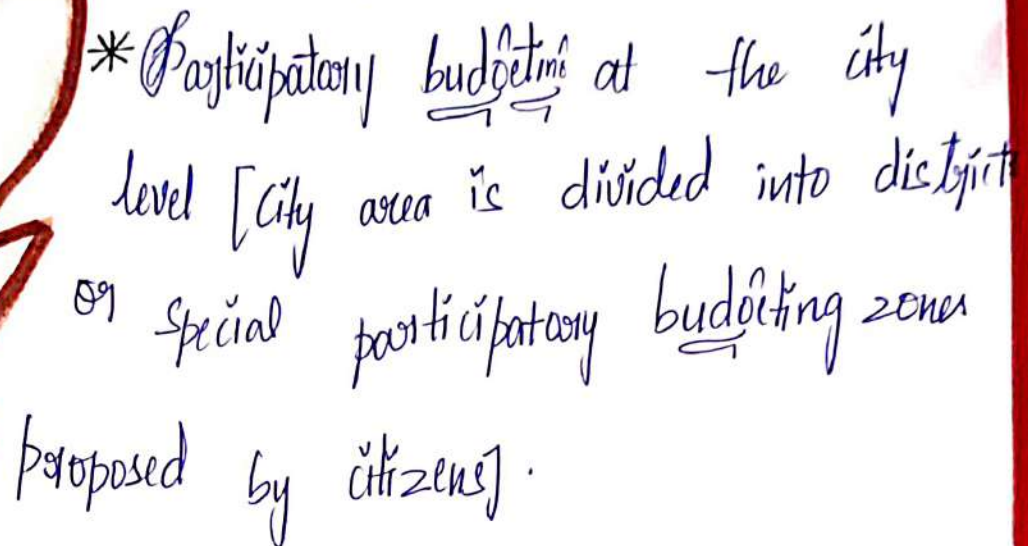 * Participatory budgeting at the city
level [City area is divided into district
or special participatory budgeting zones
proposed by citizens].